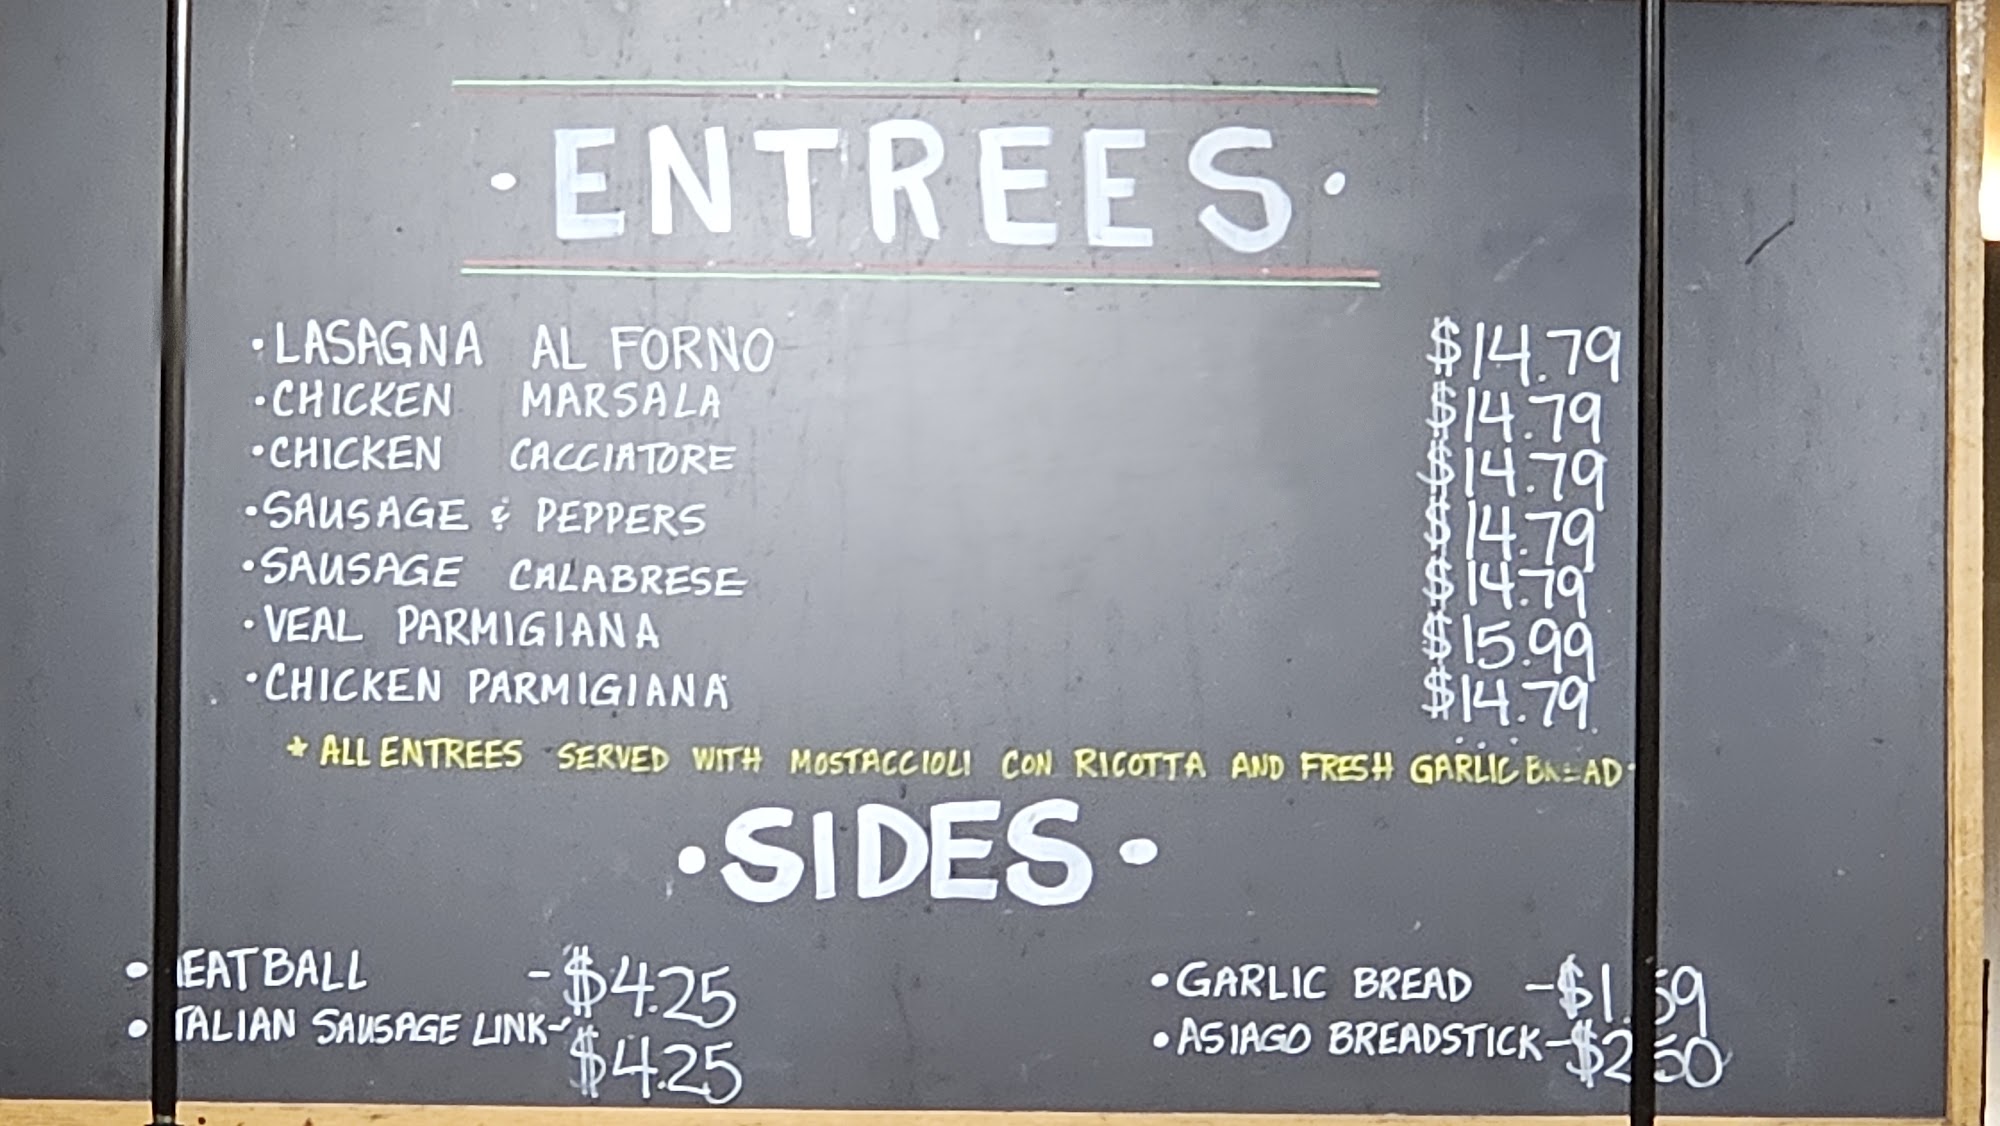 · ENTREES ·
· LASAGNA AL FORNO $14.79
· CHICKEN MARSALA $14.79
· CHICKEN CACCIATORE $14.79
· SAUSAGE & PEPPERS $14.79
· SAUSAGE CALABRESE $14.79
· VEAL PARMIGIANA $15.99
· CHICKEN PARMIGIANA $14.79
* ALL ENTREES SERVED WITH MOSTACCIOLI CON RICOTTA AND FRESH GARLIC BREAD
· SIDES ·
• EATBALL - $4.25
• TALIAN SAUSAGE LINK- $4.25
• GARLIC BREAD - $1.59
• ASIAGO BREADSTICK - $2.50